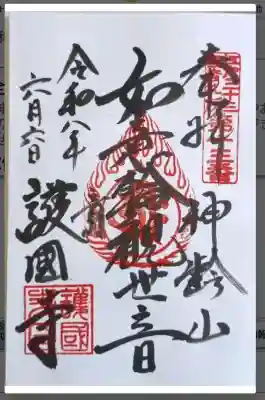 奉拝
神齢山
如意輪観世音
令和八年
六月六日
護國寺
護國寺